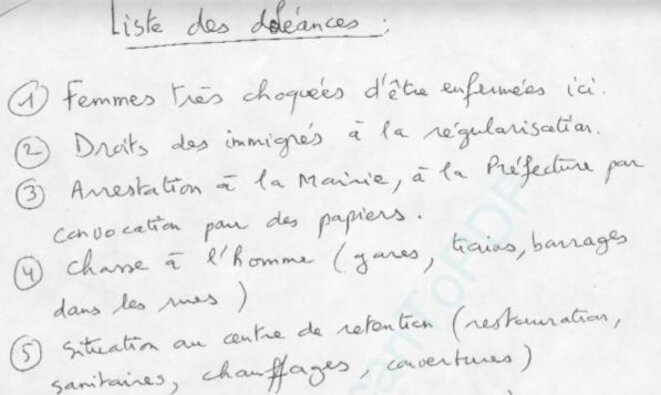 Liste des doléances :
① Femmes très choquées d'être enfermées ici.
② Droits des immigrés à la régularisation.
③ Arrestation à la Mairie, à la Préfecture par
convocation pour des papiers.
④ Chasse à l'homme (gares, trains, barrages
dans les rues)
⑤ Situation au centre de retention (restauration,
sanitaires, chauffages, couvertures)